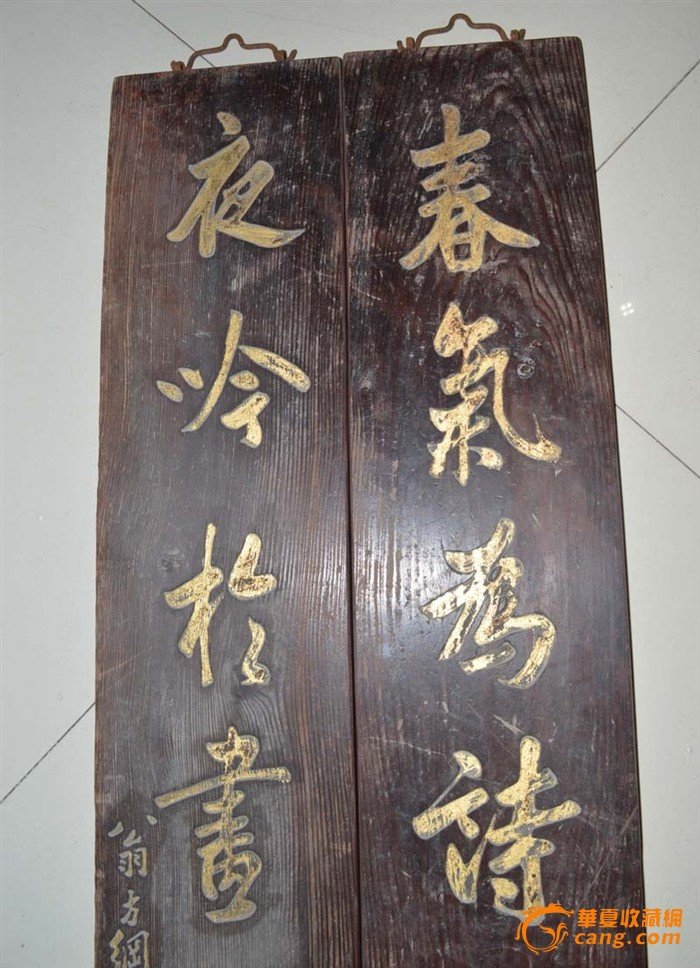 春氣為詩
夜吟於畫
翁方綱
華夏收藏網
cang.com